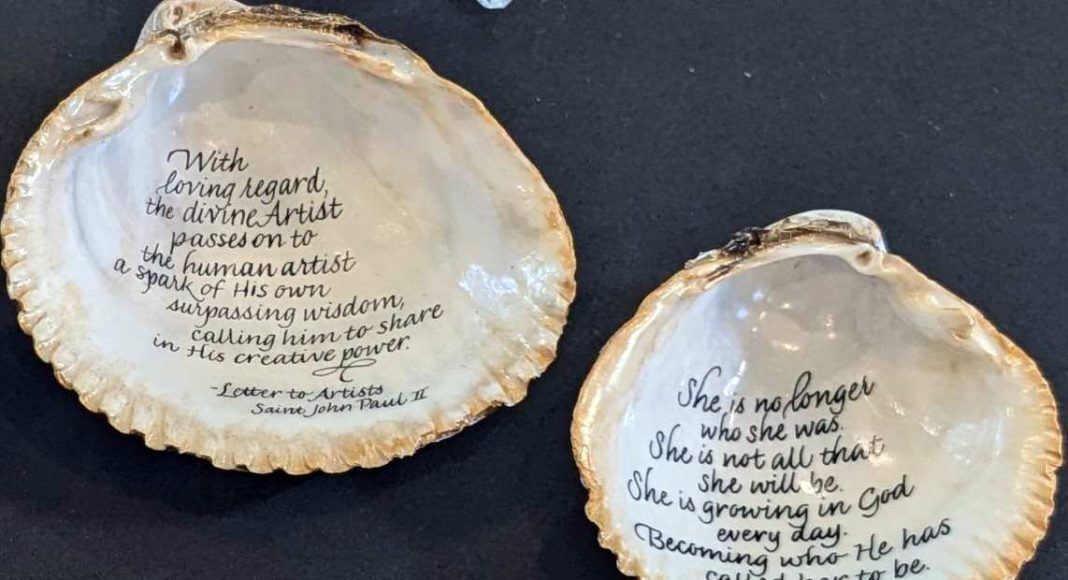 With
loving regard,
the divine Artist
passes on to
the human artist
a spark of His own
surpassing wisdom,
calling him to share
in His creative power.
-Letter to Artists
Saint John Paul II
She is no longer
who she was.
She is not all that
she will be.
She is growing in God
every day.
Becoming who He has
called her to be.